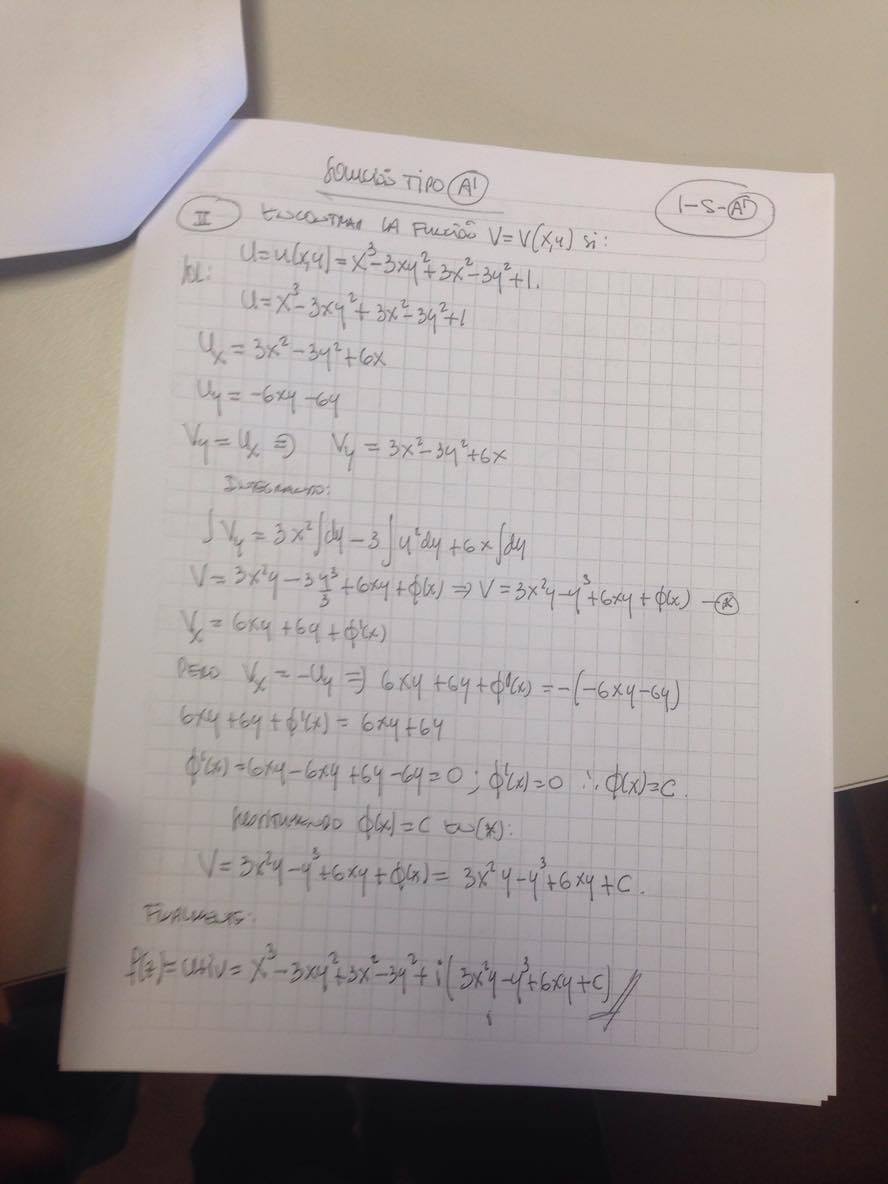 SOLUCIÓN TIPO A1
1-S-A1
II ENCONTRAR LA FUNCIÓN V=V(x,y) si:
U=u(x,y)=x³-3xy²+3x²-3y²+1.
Sol: U=x³-3xy²+3x²-3y²+1
Ux=3x²-3y²+6x
Uy=-6xy-6y
Vy=Ux ⇒ Vy=3x²-3y²+6x
INTEGRANDO:
∫Vy=3x²∫dy-3∫y²dy+6x∫dy
V=3x²y-3y³/3+6xy+ϕ(x) ⇒ V=3x²y-y³+6xy+ϕ(x) -(*)
Vx=6xy+6y+ϕ'(x)
PERO Vx=-Uy ⇒ 6xy+6y+ϕ'(x)=-(-6xy-6y)
6xy+6y+ϕ'(x)=6xy+6y
ϕ'(x)=6xy-6xy+6y-6y=0; ϕ'(x)=0 ∴ ϕ(x)=C.
ϕ(x)=C EN (*):
V=3x²y-y³+6xy+ϕ(x)=3x²y-y³+6xy+C.
FINALMENTE:
f(z)=u+iv=x³-3xy²+3x²-3y²+i(3x²y-y³+6xy+C)